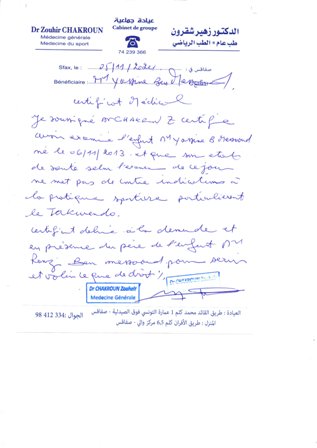 عيادة جماعية
Cabinet de groupe
Dr Zouhir CHAKROUN
Médecine générale
Médecine du sport
74 239 366
الدكتور زهير شقرون
طب عام - الطب الرياضي
Sfax, le : 05/11/2024 صفاقس في
Bénéficiaire : Mr Yassine Ben Messaoud
Certificat Médical
Je soussigné Dr Chakroun Z certifie
avoir examiné l'enfant Mr Yassine B Messaoud
né le 06/11/2013 et que son état
de santé selon l'examen de ce jour
ne met pas de contre indications à
la pratique sportive particulièrement
le Taekwondo.
Certificat délivré à la demande et
en présence du père de l'enfant Mr
Ben Messaoud pour servir
et valoir ce que de droit
Dr CHAKROUN Zouheir
Médecine Générale
العيادة : طريق القائد محمد كلم 1 عمارة التونسي فوق الصيدلية - صفاقس
المنزل : طريق الأفران كلم 6,5 مركز والي - صفاقس
الجوال: 334 412 98